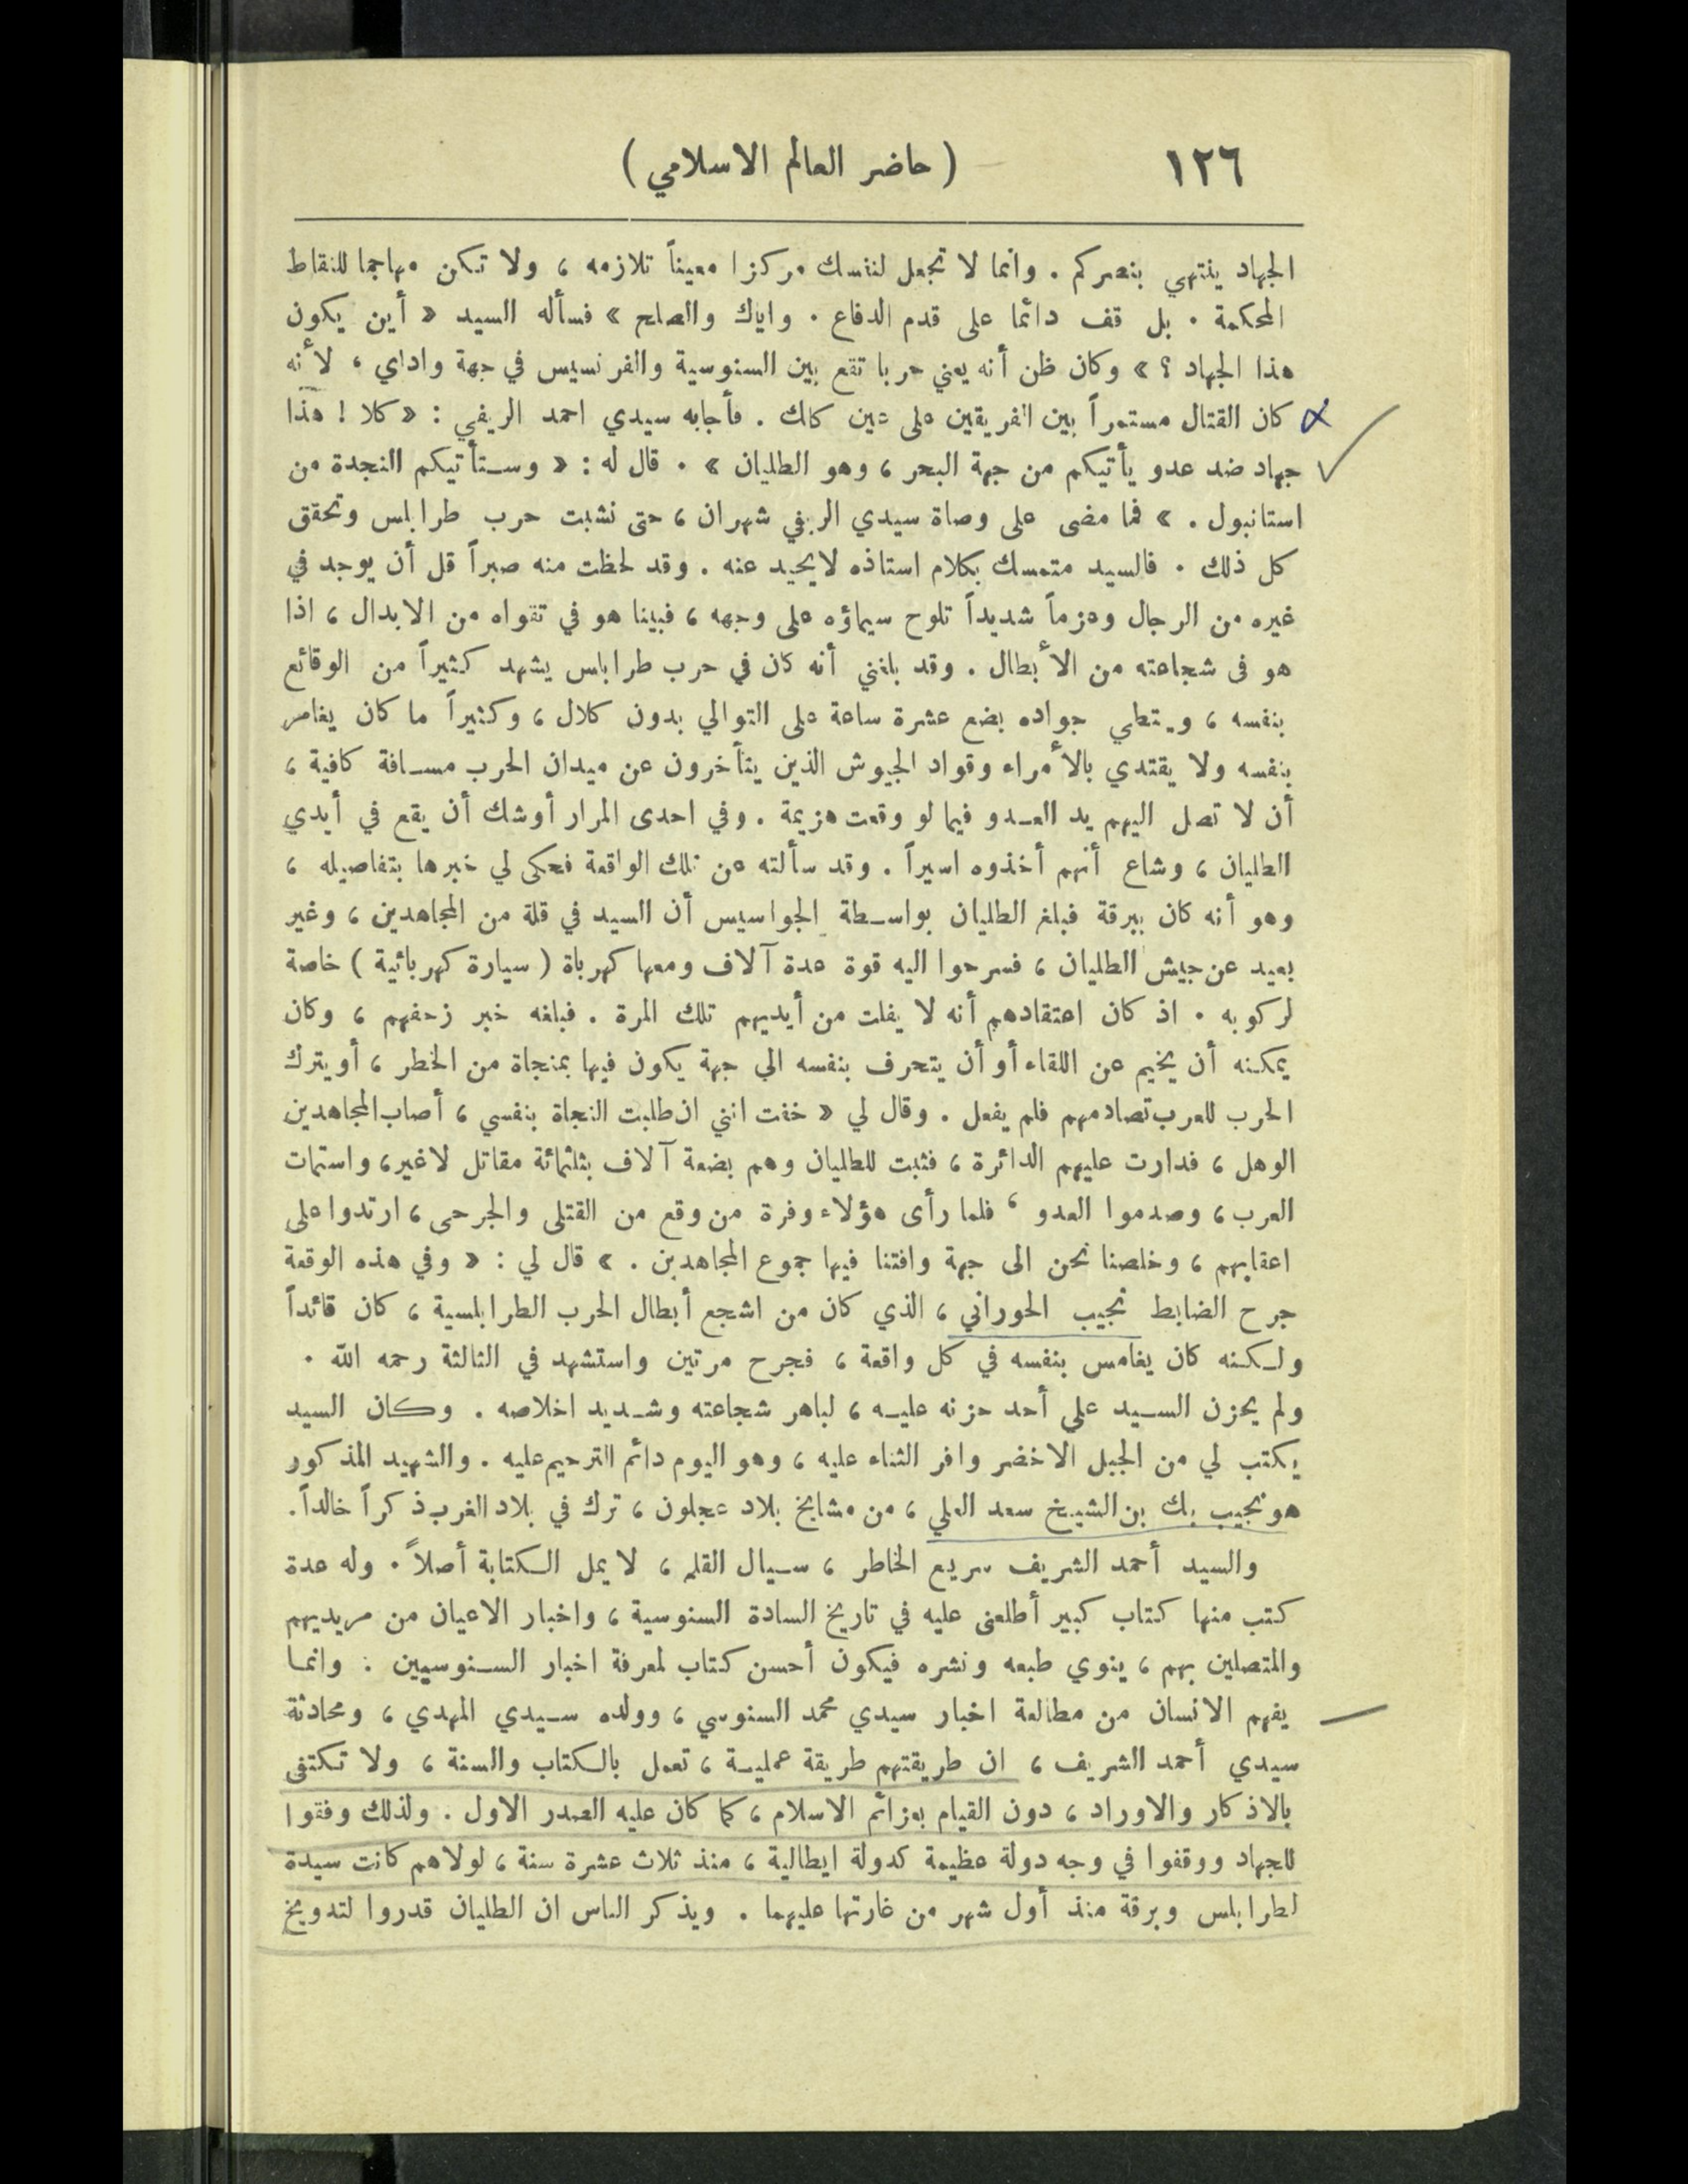 ١٢٦ ( حاضر العالم الاسلامي )
الجهاد ينتهي بنصركم . وانما لا تجعل لنفسك مركزا معيناً تلازمه ، ولا تكن مهاجما للنقاط
المحكمة . بل قف دائما على قدم الدفاع . واياك والصلح » فسأله السيد « أين يكون
هذا الجهاد ؟ » وكان ظن أنه يعني حربا تقع بين السنوسية والفرنسيس في جهة واداي ، لأنه
كان القتال مستمراً بين الفريقين على عين كالك . فأجابه سيدي احمد الريفي : « كلا ! هذا
جهاد ضد عدو يأتيكم من جهة البحر ، وهو الطليان » . قال له : « وستأتيكم النجدة من
استانبول . » فما مضى على وصاة سيدي الريفي شهران ، حتى نشبت حرب طرابلس وتحقق
كل ذلك . فالسيد متمسك بكلام استاذه لايحيد عنه . وقد لحظت منه صبراً قل أن يوجد في
غيره من الرجال وعزماً شديداً تلوح سيماؤه على وجهه ، فبينا هو في تقواه من الابدال ، اذا
هو فى شجاعته من الأبطال . وقد بلغني أنه كان في حرب طرابلس يشهد كثيراً من الوقائع
بنفسه ، ويمتطي جواده بضع عشرة ساعة على التوالي بدون كلال ، وكثيراً ما كان يغامر
بنفسه ولا يقتدي بالأمراء وقواد الجيوش الذين يتأخرون عن ميدان الحرب مسافة كافية ،
أن لا تصل اليهم يد العدو فيما لو وقعت هزيمة . وفي احدى المرار أوشك أن يقع في أيدي
الطليان ، وشاع أنهم أخذوه اسيراً . وقد سألته عن تلك الواقعة فحكى لي خبرها بتفاصيله ،
وهو أنه كان ببرقة فبلغ الطليان بواسطة الجواسيس أن السيد في قلة من المجاهدين ، وغير
بعيد عن جيش الطليان ، فسرحوا اليه قوة عدة آلاف ومعها كهرباة ( سيارة كهربائية ) خاصة
لركوبه . اذ كان اعتقادهم أنه لا يفلت من أيديهم تلك المرة . فبلغه خبر زحفهم ، وكان
يمكنه أن يخيم عن اللقاء أو أن يتحرف بنفسه الي جهة يكون فيها بمنجاة من الخطر ، أو يترك
الحرب للعرب تصادمهم فلم يفعل . وقال لي « خفت انني ان طلبت النجاة بنفسي ، أصاب المجاهدين
الوهل ، فدارت عليهم الدائرة ، فثبت للطليان وهم بضعة آلاف بثلثمائة مقاتل لاغير ، واستمات
العرب ، وصدموا العدو ، فلما رأى هؤلاء وفرة من وقع من القتلى والجرحى ، ارتدوا على
اعقابهم ، وخلصنا نحن الى جهة وافتنا فيها جموع المجاهدين . » قال لي : « وفي هذه الوقعة
جرح الضابط نجيب الحوراني ، الذي كان من اشجع أبطال الحرب الطرابلسية ، كان قائداً
ولكنه كان يغامس بنفسه في كل واقعة ، فجرح مرتين واستشهد في الثالثة رحمه الله .
ولم يحزن السيد علي أحد حزنه عليه ، لباهر شجاعته وشديد اخلاصه . وكان السيد
يكتب لي من الجبل الاخضر وافر الثناء عليه ، وهو اليوم دائم الترحيم عليه . والشهيد المذكور
هو نجيب بك بن الشيخ سعد العلي ، من مشايخ بلاد عجلون ، ترك في بلاد الغرب ذكراً خالداً .
والسيد أحمد الشريف سريع الخاطر ، سيال القلم ، لا يمل الكتابة أصلاً . وله عدة
كتب منها كتاب كبير أطلعنى عليه في تاريخ السادة السنوسية ، واخبار الاعيان من مريديهم
والمتصلين بهم ، ينوي طبعه ونشره فيكون أحسن كتاب لمعرفة اخبار السنوسيين : وانما
يفهم الانسان من مطالعة اخبار سيدي محمد السنوسي ، وولده سيدي المهدي ، ومحادثة
سيدي أحمد الشريف ، ان طريقتهم طريقة عملية ، تعمل بالكتاب والسنة ، ولا تكتفى
بالاذكار والاوراد ، دون القيام بعزائم الاسلام ، كما كان عليه الصدر الاول . ولذلك وفقوا
للجهاد ووقفوا في وجه دولة عظيمة كدولة ايطالية ، منذ ثلاث عشرة سنة ، لولاهم كانت سيدة
لطرابلس وبرقة منذ أول شهر من غارتها عليهما . ويذكر الناس ان الطليان قدروا لتدويخ